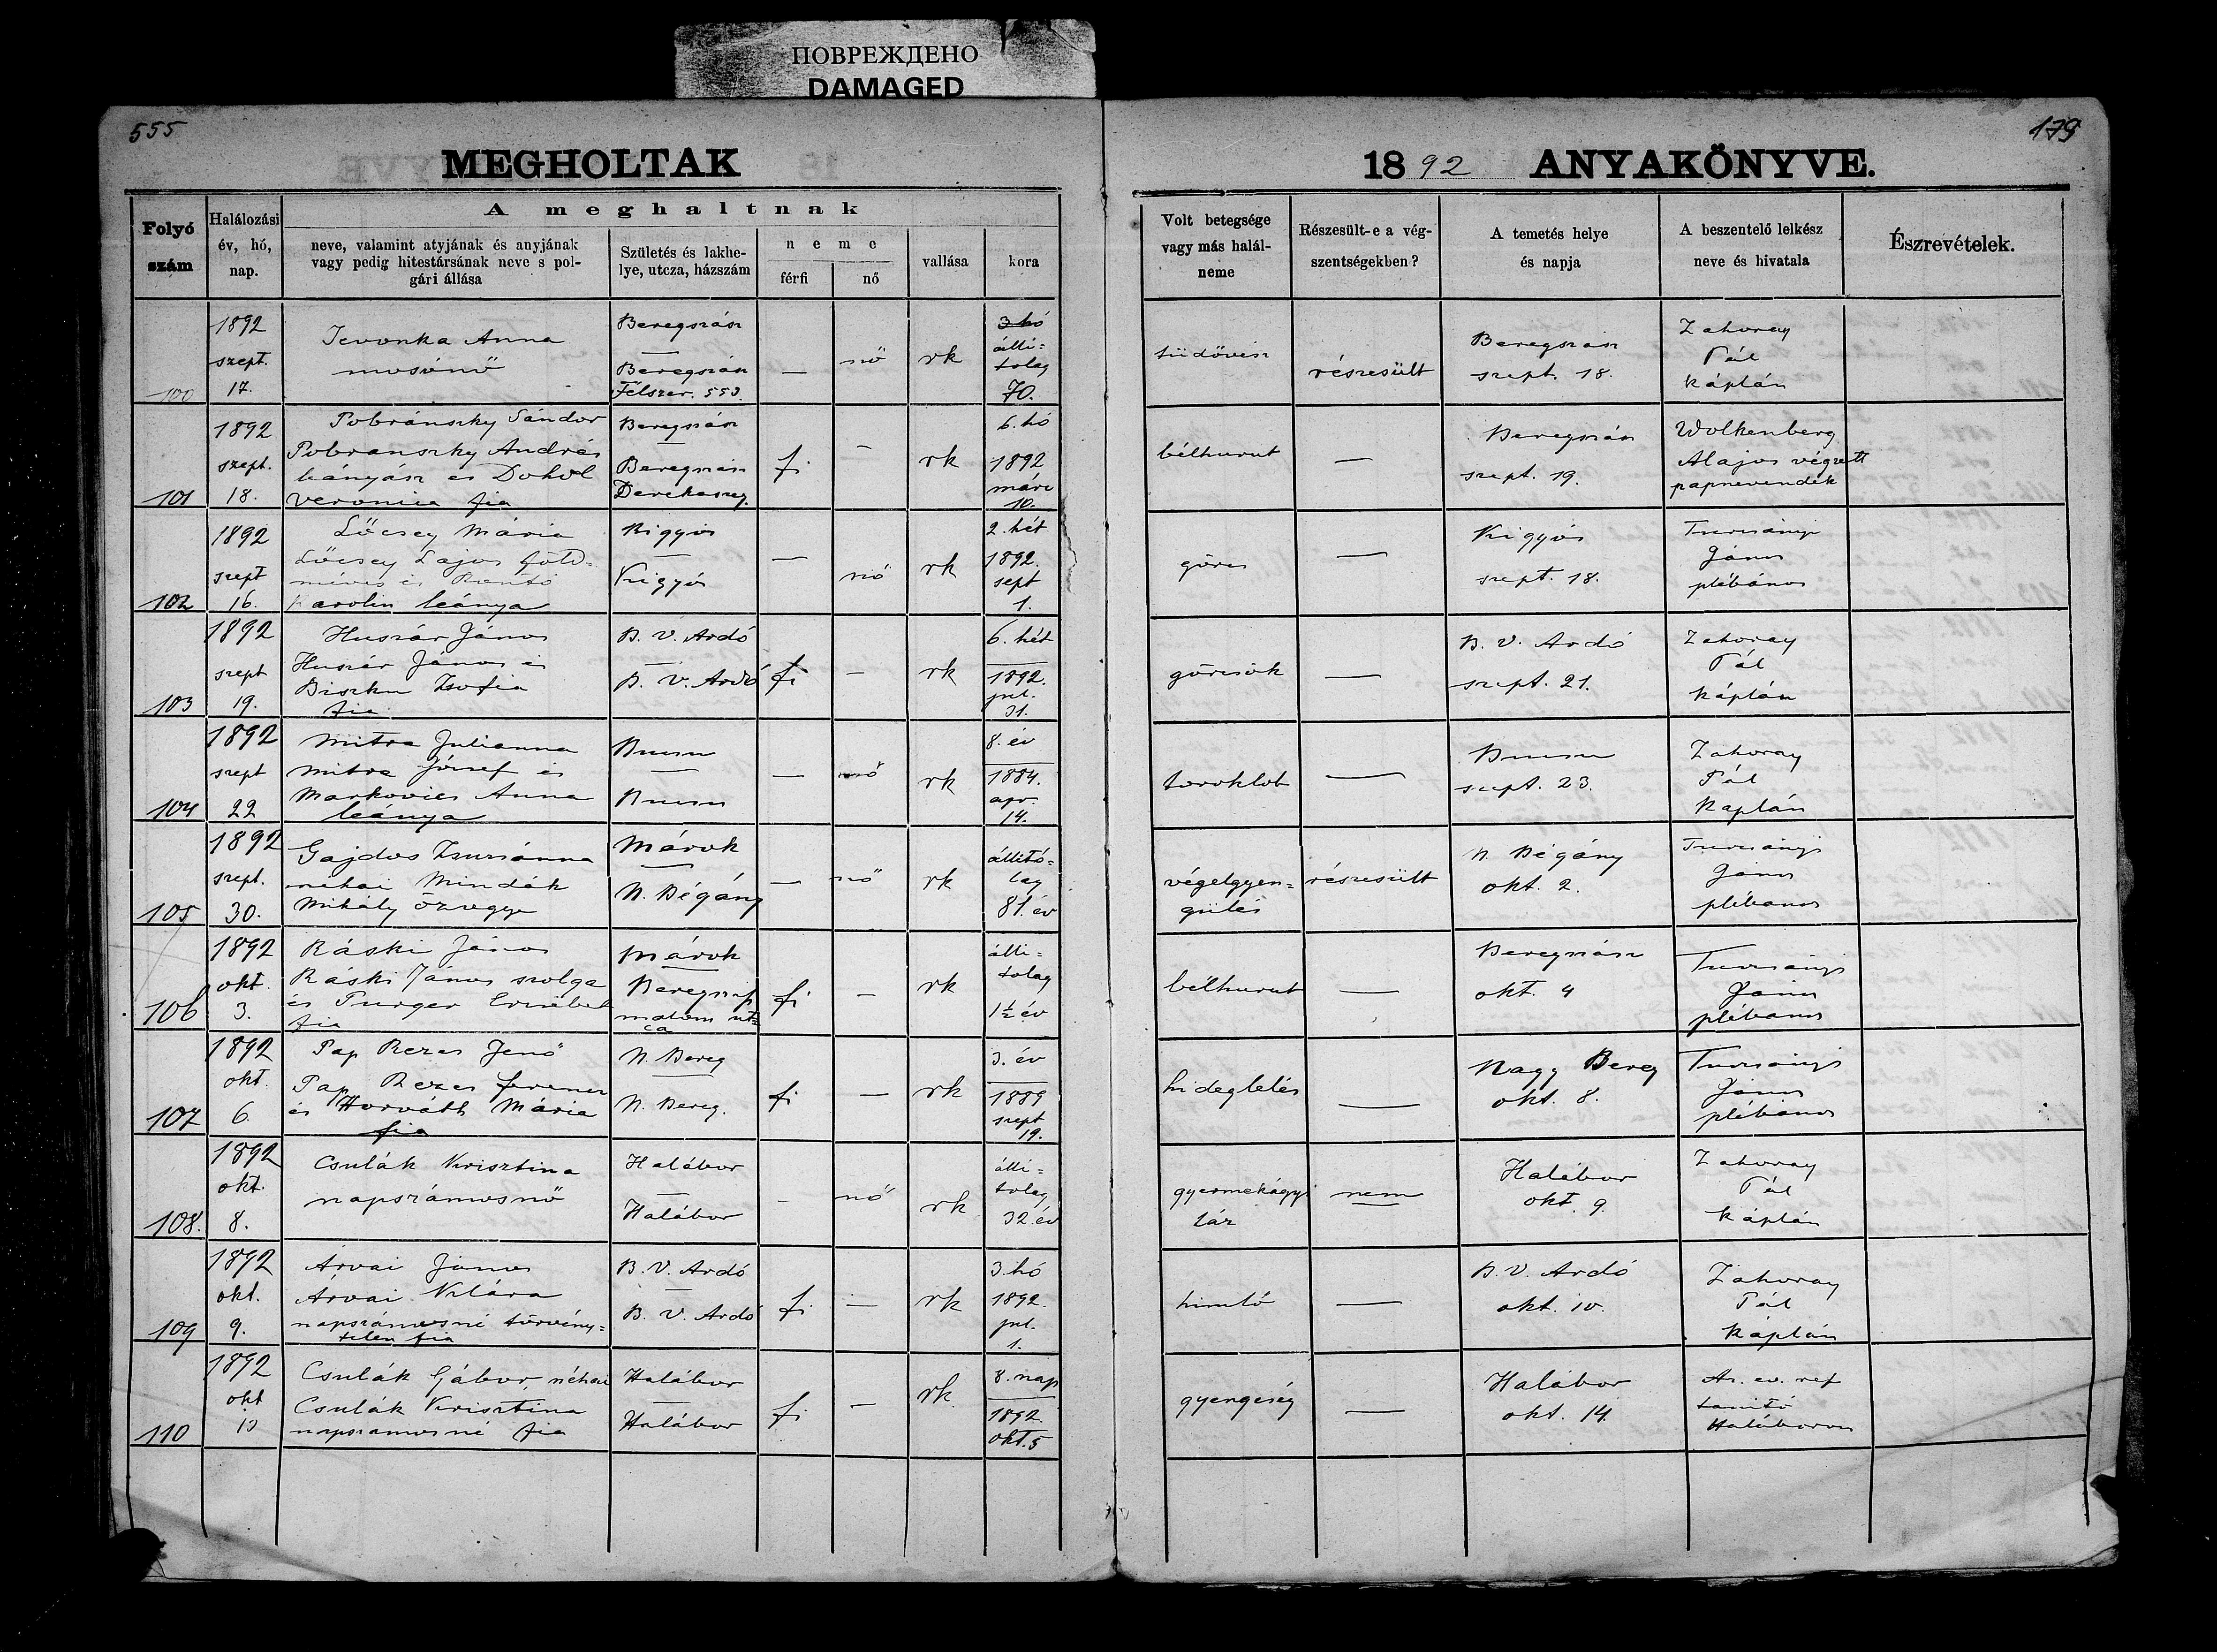 ПОВРЕЖДЕНО
DAMAGED
555
179
MEGHOLTAK
1892 ANYAKÖNYVE.
Folyó szám
Halálozási év, hó, nap.
A meghaltnak
neve, valamint atyjának és anyjának vagy pedig hitestársának neve s polgári állása
Születés és lakhelye, utcza, házszám
neme
férfi
nő
vallása
kora
Volt betegsége vagy más halálneme
Részesült-e a végszentségekben?
A temetés helye és napja
A beszentelő lelkész neve és hivatala
Észrevételek.
100
1892 szept. 17.
Jevonka Anna
mosónő
Beregszász
—
Beregszász
Félszer. 553.
—
nő
rk
3 hó
álli=
tolag
70.
tüdővész
részesült
Beregszász
szept. 18.
Zahoray
Pál
káplán
101
1892 szept. 18.
Pobránszky Sándor
Pobranszky András
bányász és Dohol
Veronica fia
Beregszász
—
Beregszász
Derekaszeg.
fi
—
rk
6. hó
1892
márc
10.
bélhurut
—
Beregszász
szept. 19.
Wolkenberg
Alajos végzett
papnevendék
102
1892 szept 16.
Lőcsey Mária
Lőcsey Lajos föld=
míves és
Karolin leánya
Kigyós
—
Kigyós
—
nő
rk
2. hét
1892.
sept
1.
görcs
—
Kigyós
szept. 18.
Turcsányi
János
plébános
103
1892 szept 19.
Huszár János
Huszár János és
Biszku Zsofia
fia
B. V. Ardó
—
B. V. Ardó
fi
—
rk
6. hét
1892.
jul.
31.
görcsök
—
B. V. Ardó
szept. 21.
Zahoray
Pál
káplán
104
1892 szept 22
Mitra Julianna
Mitra József és
Markovics Anna
leánya
Bucsu
—
Bucsu
—
nő
rk
8. év
1884.
apr.
14.
toroklob
—
Bucsu
szept. 23.
Zahoray
Pál
Kaplán
105
1892 szept. 30.
Gajdos Zsuzsánna
néhai Mindák
Mihály özvegye
Márok
—
N. Bégány
—
nő
rk
állító=
lag
81. év
végelgyen=
gülés
részesült
N. Bégány
okt. 2.
Turcsányi
János
plébános
106
1892 okt. 3.
Ráski János
Ráski János szolga
és Purger Erzsébet
fia
Márok
—
Beregszász
malom ut=
ca
fi
—
rk
álli=
tolag
1½ év
bélhurut
—
Beregszász
okt. 4
Turcsányi
János
plébános
107
1892 okt. 6.
Pap Rezes Jenő
Pap Rezes Ferencz
és Horváth Mária
fia
N. Bereg
—
N. Bereg.
fi
—
rk
3. év
1889
szept
19.
hideglelés
—
Nagy Bereg
okt. 8.
Turcsányi
János
plébános
108.
1892 okt. 8.
Csulák Krisztina
napszámosnő
Halábor
—
Halábor
—
nő
rk
álli=
tolag
32. év
gyermekágyi
láz
nem
Halábor
okt. 9.
Zahoray
Pál
káplán
109
1892 okt. 9.
Árvai János
Árvai Klára
napszámosné törvény=
telen fia
B. V. Ardó
—
B. V. Ardó
fi
—
rk
3. hó
1892.
jul.
1.
himlő
—
B. V. Ardó
okt. 10.
Zahoray
Pál
káplán
110
1892 okt 13
Csulák Gábor, néhai
Csulák Krisztina
napszamosné fia
Halábor
—
Halábor
fi
—
rk
8. nap
1892.
okt. 5
gyengeség
—
Halábor
okt. 14.
Az. ev. ref
tanító
Halaboron